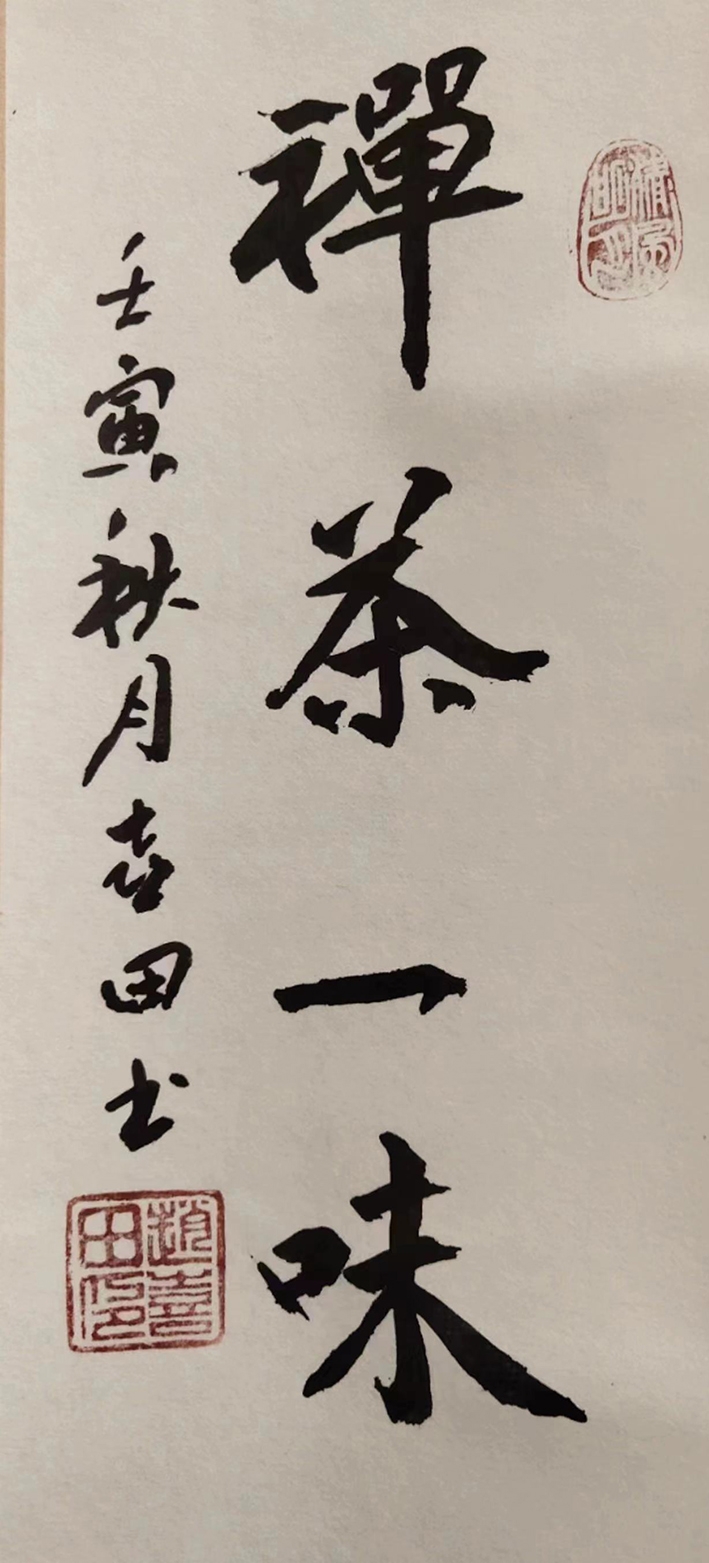 禪茶一味
壬寅秋月喜田书
趙喜田印